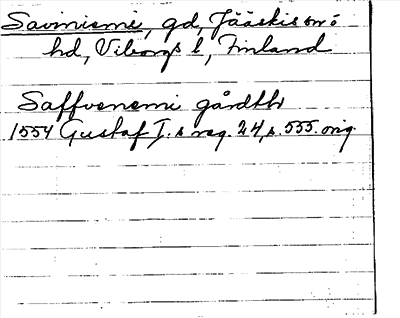 Saviniemi, gd, Jääskis sn o
hd, Viborgs l, Finland
Saffvenemi gårdth
1554 Gustaf I:s reg. 24, s. 555. orig.